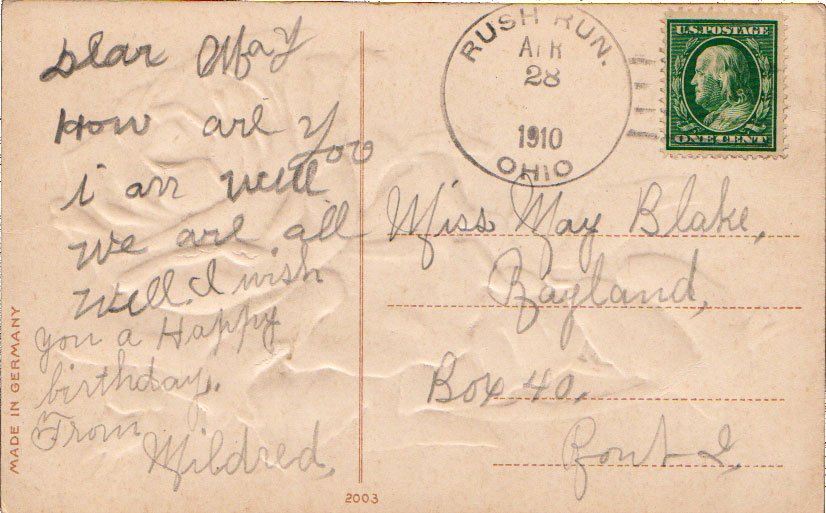 Dear May
How are you
i am well
we are all
well. I wish
you a Happy
birthday.
From
Mildred.
RUSH RUN.
APR
28
1910
OHIO
U.S. POSTAGE
ONE CENT
Miss May Blake,
Rayland,
Box 40,
Rout 2
MADE IN GERMANY
2003